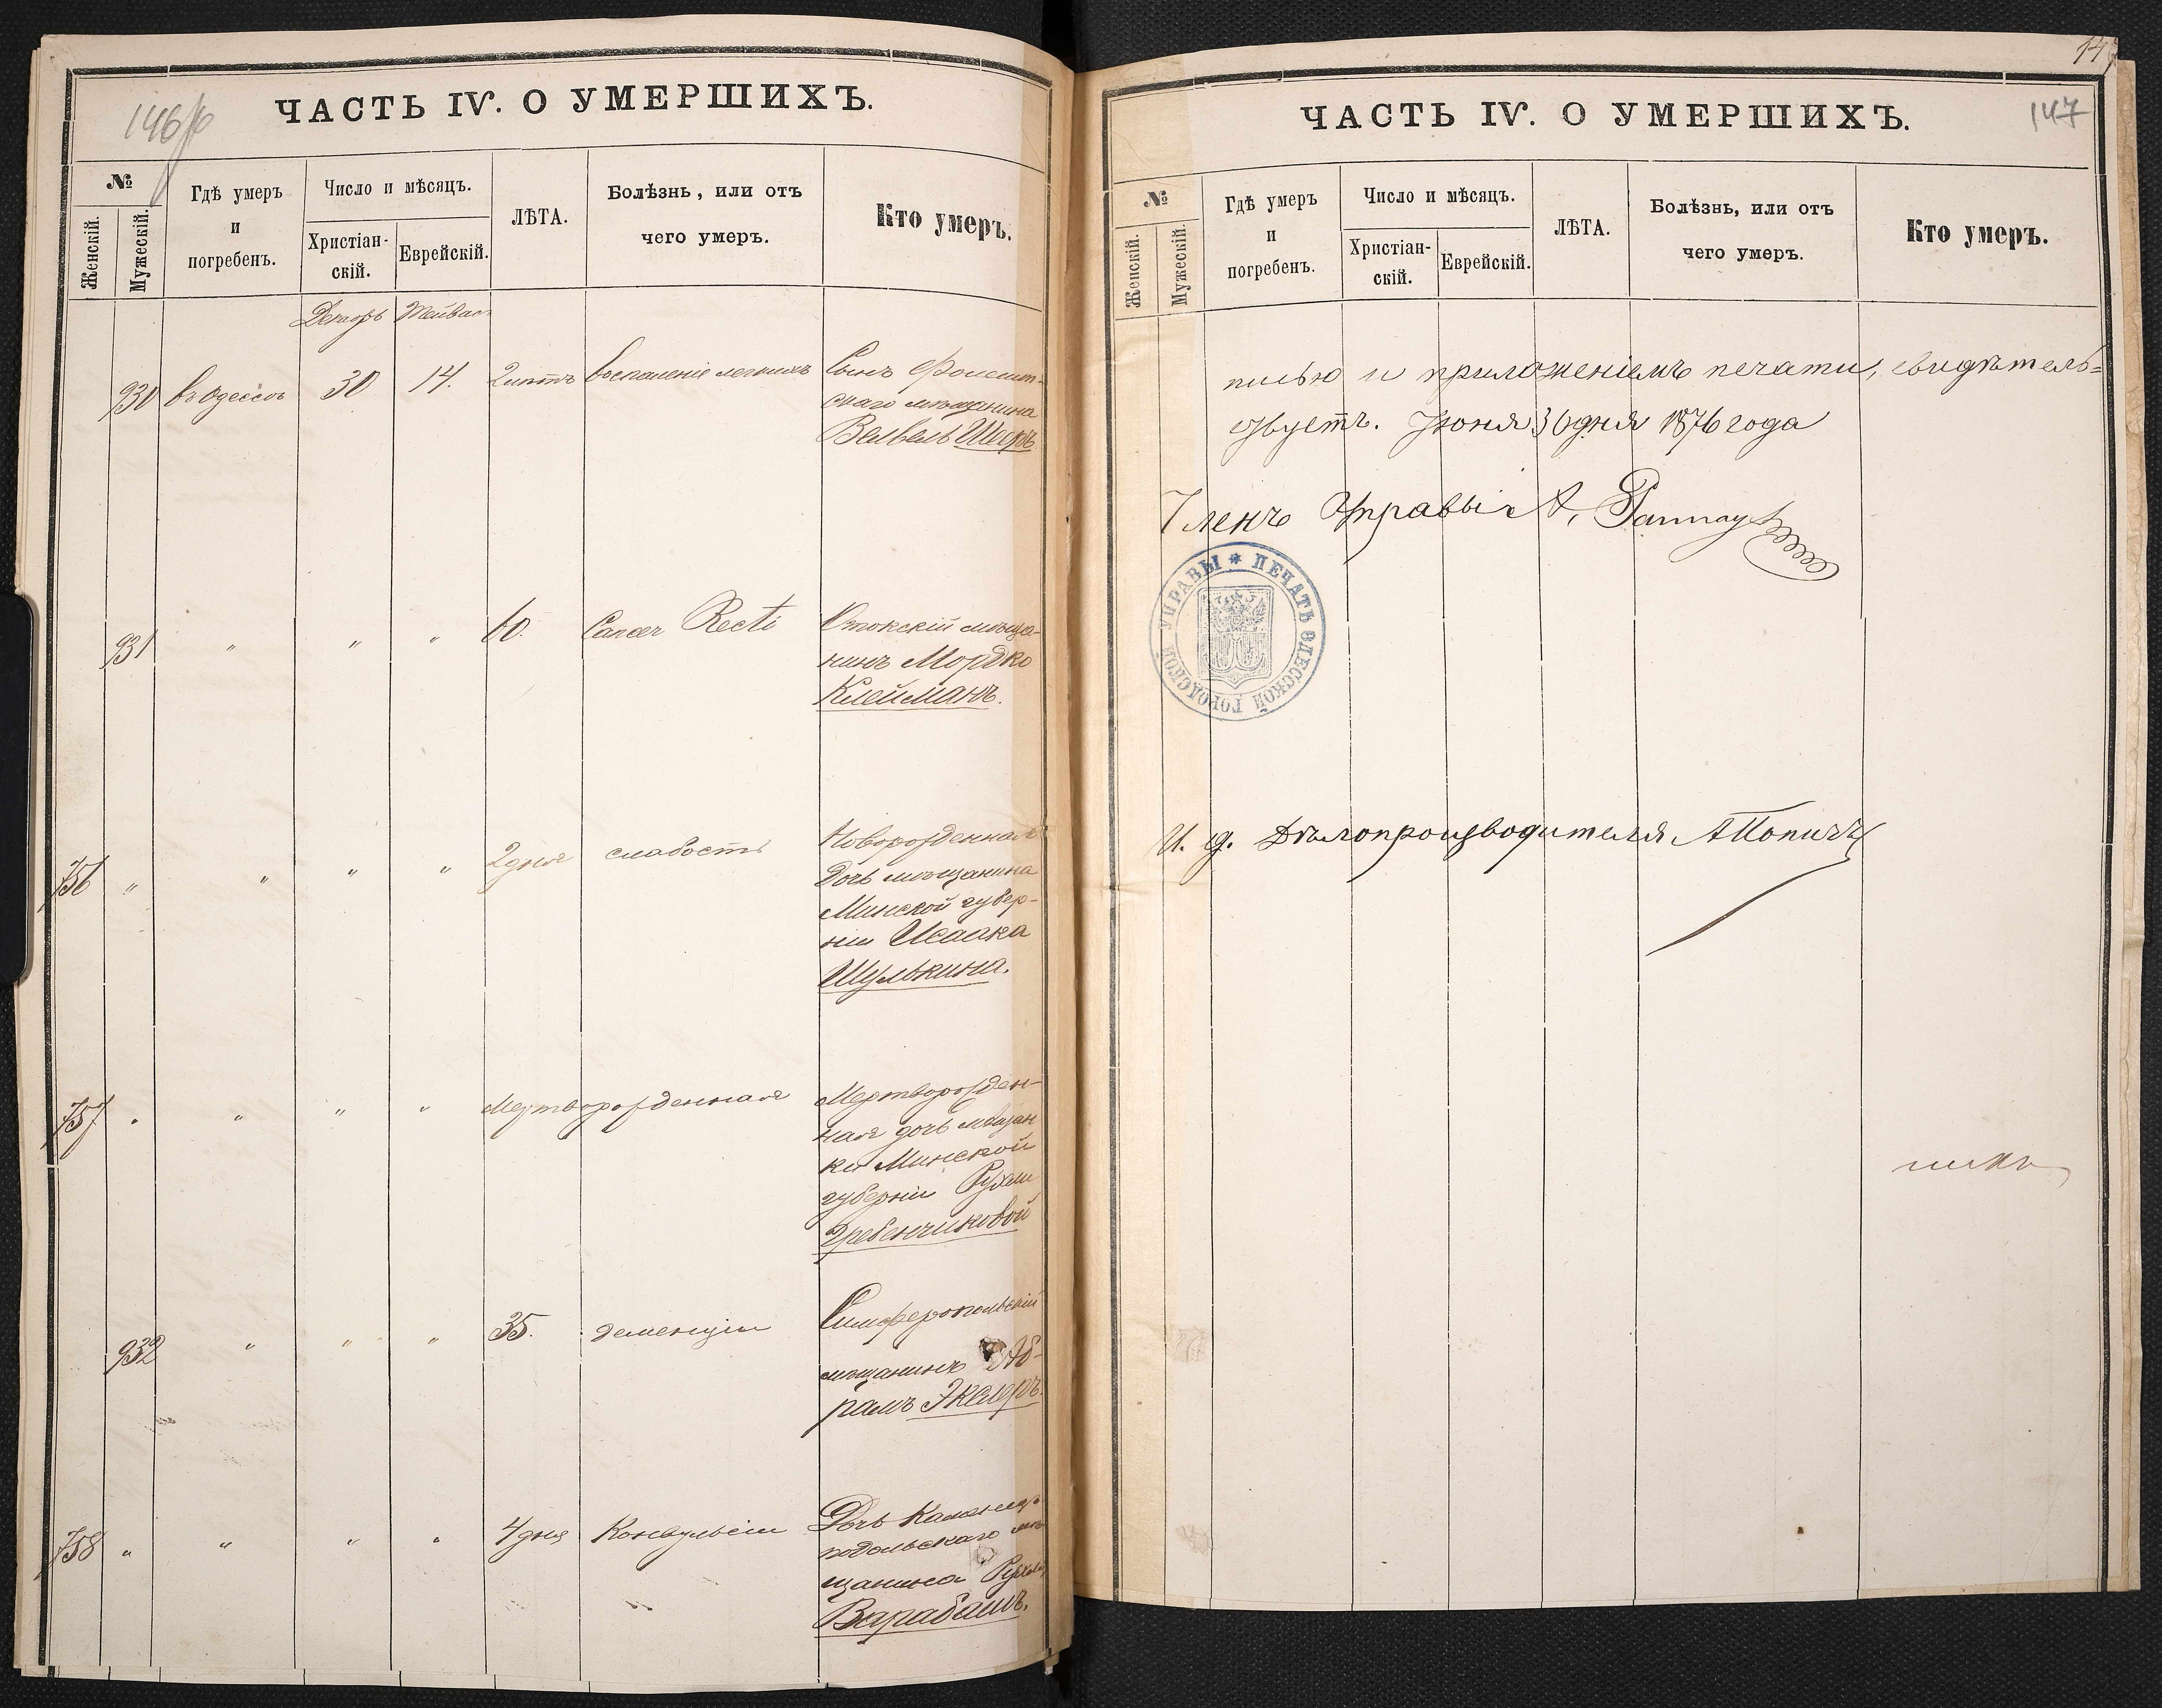 146 об
ЧАСТЬ IV. О УМЕРШИХЪ.
№
Женскій.
Мужескій.
Гдѣ умеръ
и
погребенъ.
Число и мѣсяцъ.
Христіан-
скій.
Еврейскій.
ЛѢТА.
Болѣзнь, или отъ
чего умеръ.
Кто умеръ.
930 въ Одессѣ 30 14. 2 лѣтъ воспаленіе легкихъ Сынъ
скаго мѣщанина
Велвель Шеръ
931 " " " 60. Cancer Recti мѣща-
нинъ Мордко
Клейманъ.
756 " " " " 2 дня слабость Новорожденная
дочь мѣщанина
Минской губер-
ніи Исаака
Шулькина.
757 " " " " Мертворожденная Мертворожден-
ная дочь мѣщан
ки Минской
губерніи Рухли
Гребенчиковой
932 " " " 35. деменціи Симферопольскій
мѣщанинъ Аб-
рамъ Экслеръ.
758 " " " " 4 дня Конвульсіи Дочь Каменец-
подольскаго мѣ-
щанина
Барабашъ.
147
ЧАСТЬ IV. О УМЕРШИХЪ.
147
№
Женскій.
Мужескій.
Гдѣ умеръ
и
погребенъ.
Число и мѣсяцъ.
Христіан-
скій.
Еврейскій.
ЛѢТА.
Болѣзнь, или отъ
чего умеръ.
Кто умеръ.
писью и приложеніемъ печати, свидѣтель=
ствуетъ. Іюня 30 дня 1876 года
Членъ Управы А.
ПЕЧАТЬ ОДЕССКОЙ ГОРОДСКОЙ УПРАВЫ
И. д. Дѣлопроизводителя А Поповъ